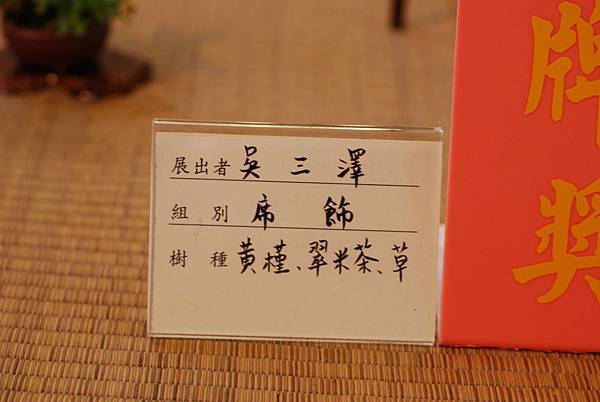 展出者 吳三澤
組別 席飾
樹種 黃槿、翠米茶、草
牌獎